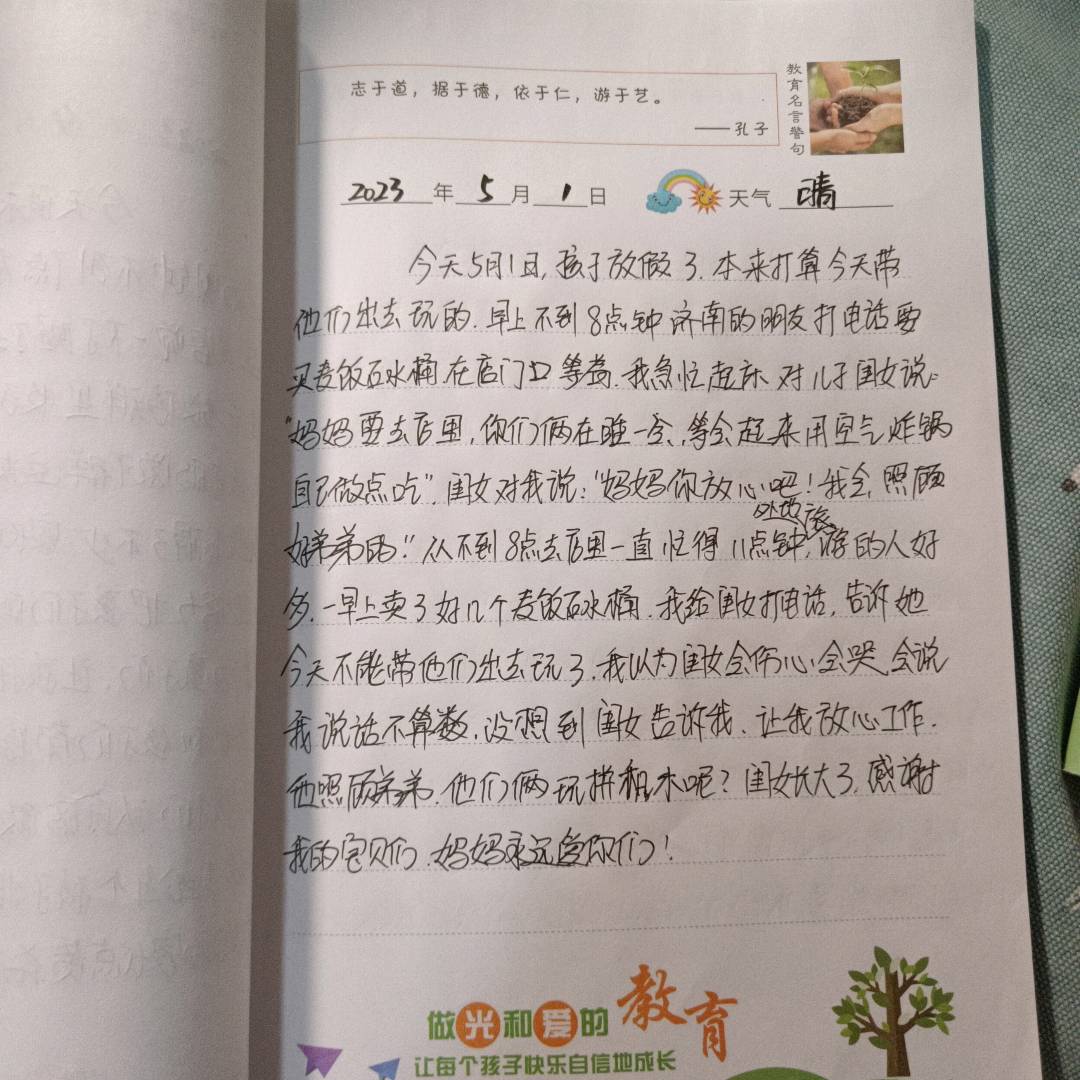 志于道，据于德，依于仁，游于艺。
——孔子
教育名言警句
2023年5月1日 天气 晴
今天5月1日，孩子放假了.本来打算今天带
他们出去玩的.早上不到8点钟济南的朋友打电话要
买麦饭石水桶.在店门口等着.我急忙起床对儿子闺女说：
“妈妈要去店里，你们俩在睡一会，等会起来用空气炸锅
自己做点吃”.闺女对我说：“妈妈你放心吧！我会照顾
好弟弟的.”从不到8点去店里一直忙得11点钟，外地旅游的人好
多.一早上卖了好几个麦饭石水桶.我给闺女打电话，告诉她
今天不能带他们出去玩了.我以为闺女会伤心会哭会说
我说话不算数.没想到闺女告诉我.让我放心工作.
他照顾弟弟.他们俩玩拼积木呢？闺女长大了，感谢
我的宝贝们.妈妈永远爱你们！
做光和爱的教育
让每个孩子快乐自信地成长